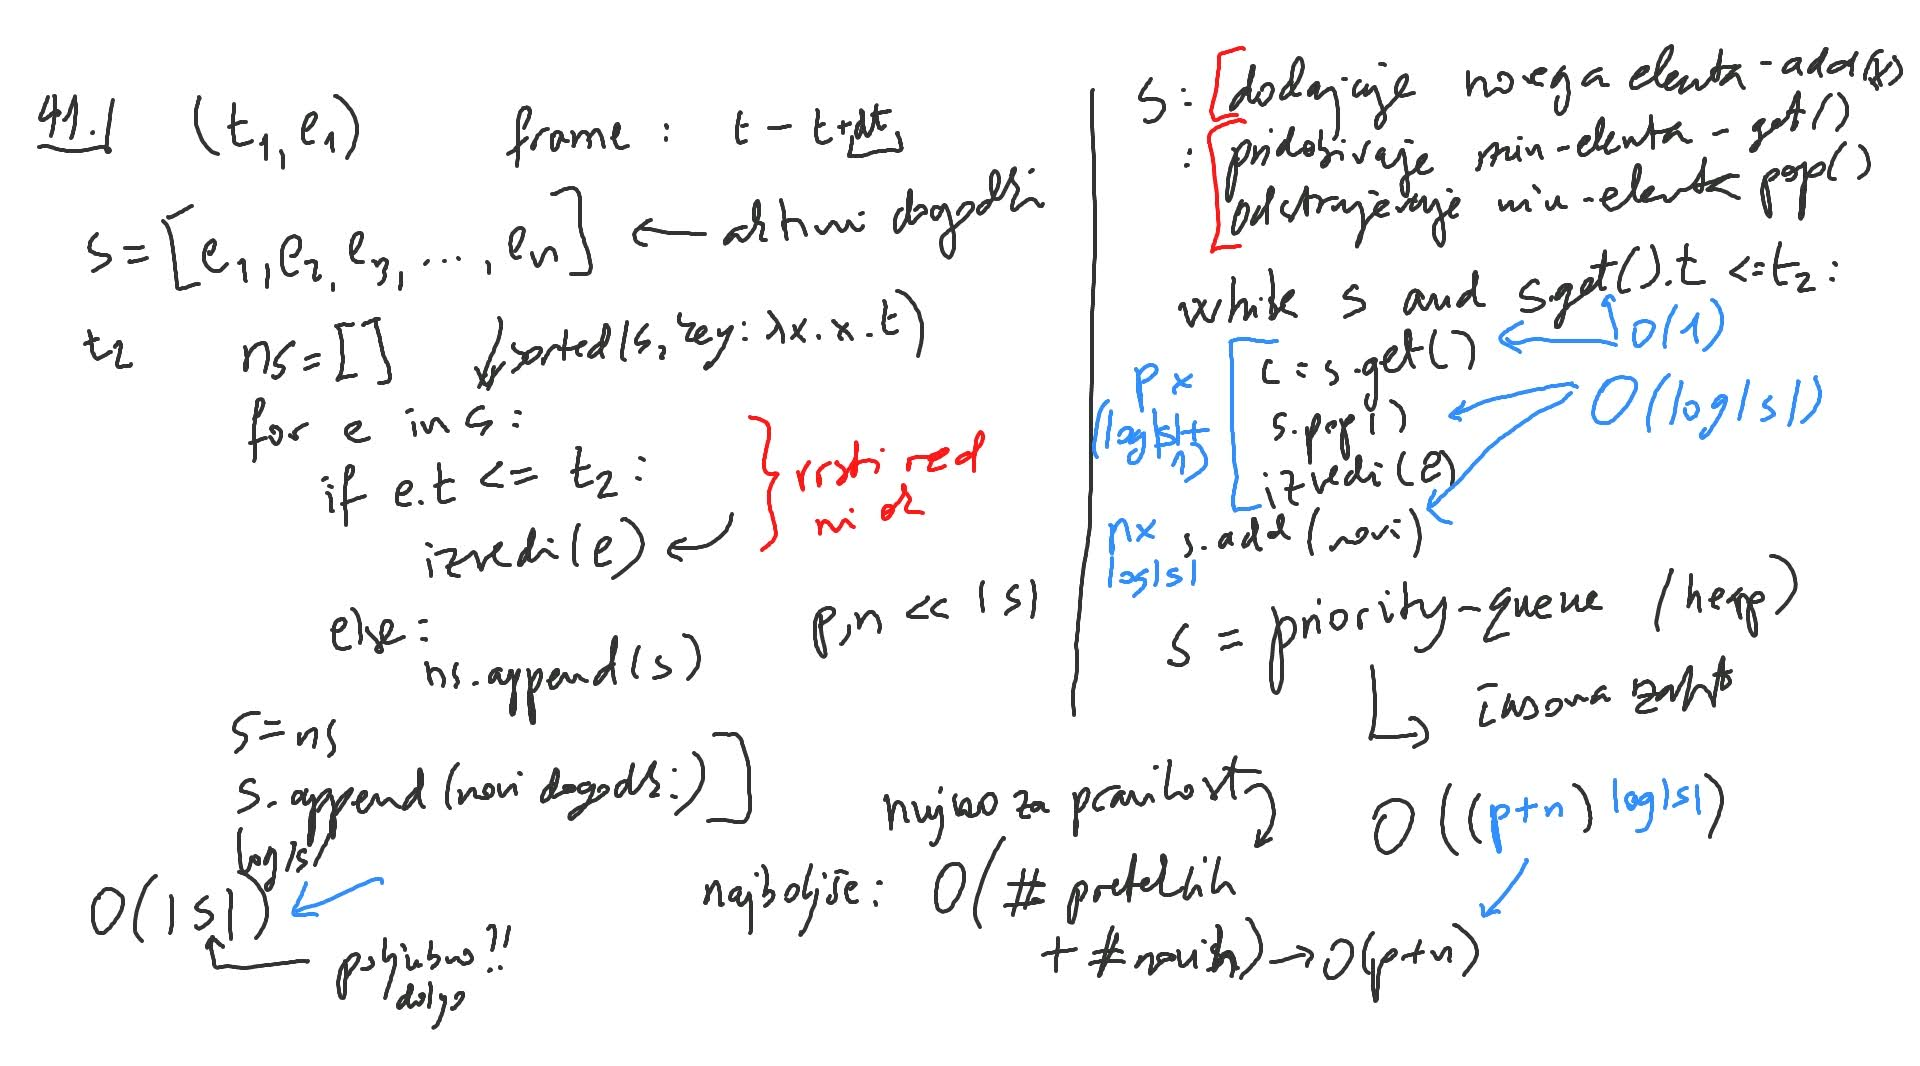 41.1 (t₁, e₁) frame : t - t+dt
s = [e₁, e₂, e₃, ..., eₙ] ← aktivni dogodki
t₂ ns = [] sorted(s, key: λx. x.t)
for e in s:
if e.t <= t₂ :
izvedi(e) ←
vrsti red
ni ok
else:
ns.append(s)
p, n << |s|
s = ns
s.append(novi dogodki)
log|s|
O(|s|)
poljubno!!
dolgo
nujno za pravilnost
najboljše: O(# preteklih
+ # novih) → O(p+n)
s: dodajaje novega elenta - add(x)
: pridobivaje min-elenta - get()
odstrajevaje min-elenta pop()
while s and s.get().t <= t₂ :
c = s.get() O(1)
s.pop() O(log|s|)
izvedi(e)
p x
(log|s|+
1)
s.add(novi)
n x
log|s|
s = priority-queue (heap)
časovna zaht
O((p+n) log|s|)